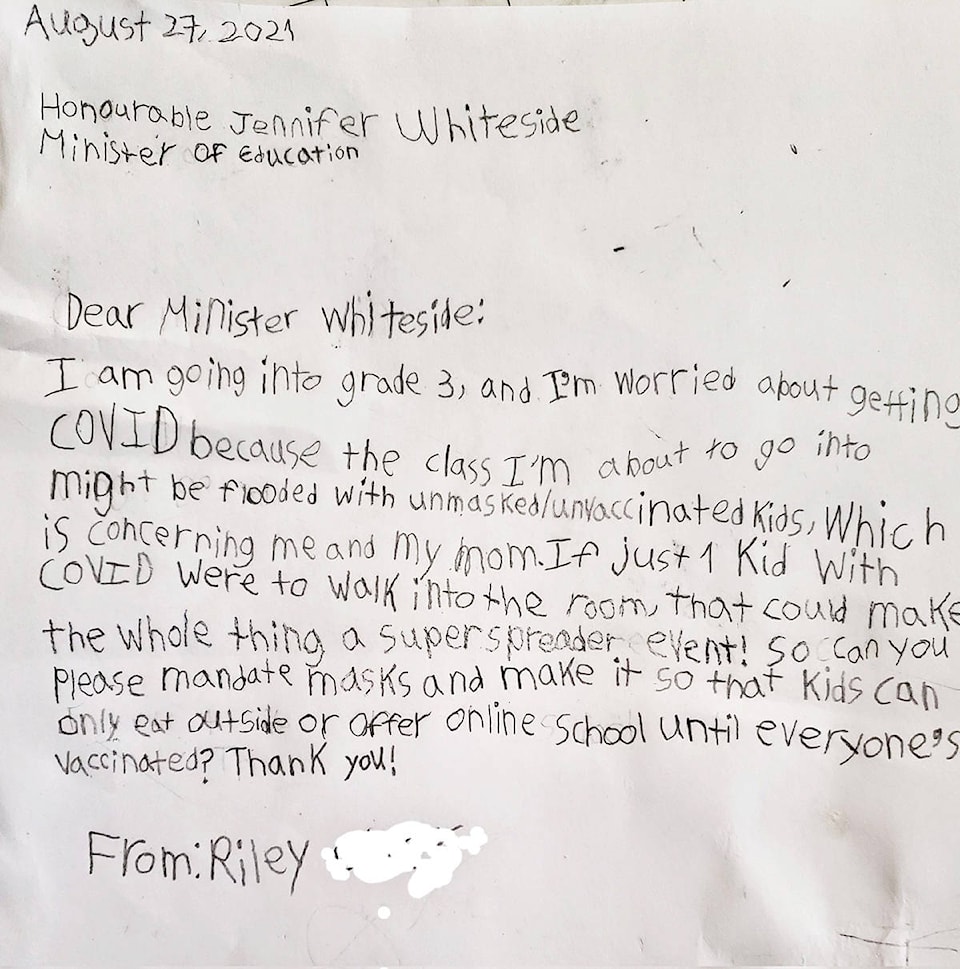 August 27, 2021
Honourable Jennifer Whiteside
Minister of Education
Dear Minister Whiteside:
I am going into grade 3, and I'm worried about getting
COVID because the class I'm about to go into
might be flooded with unmasked/unvaccinated kids, which
is concerning me and my mom. If just 1 kid with
COVID were to walk into the room, that could make
the whole thing a superspreader event! So can you
please mandate masks and make it so that kids can
only eat outside or offer online school until everyone's
vaccinated? Thank you!
From: Riley